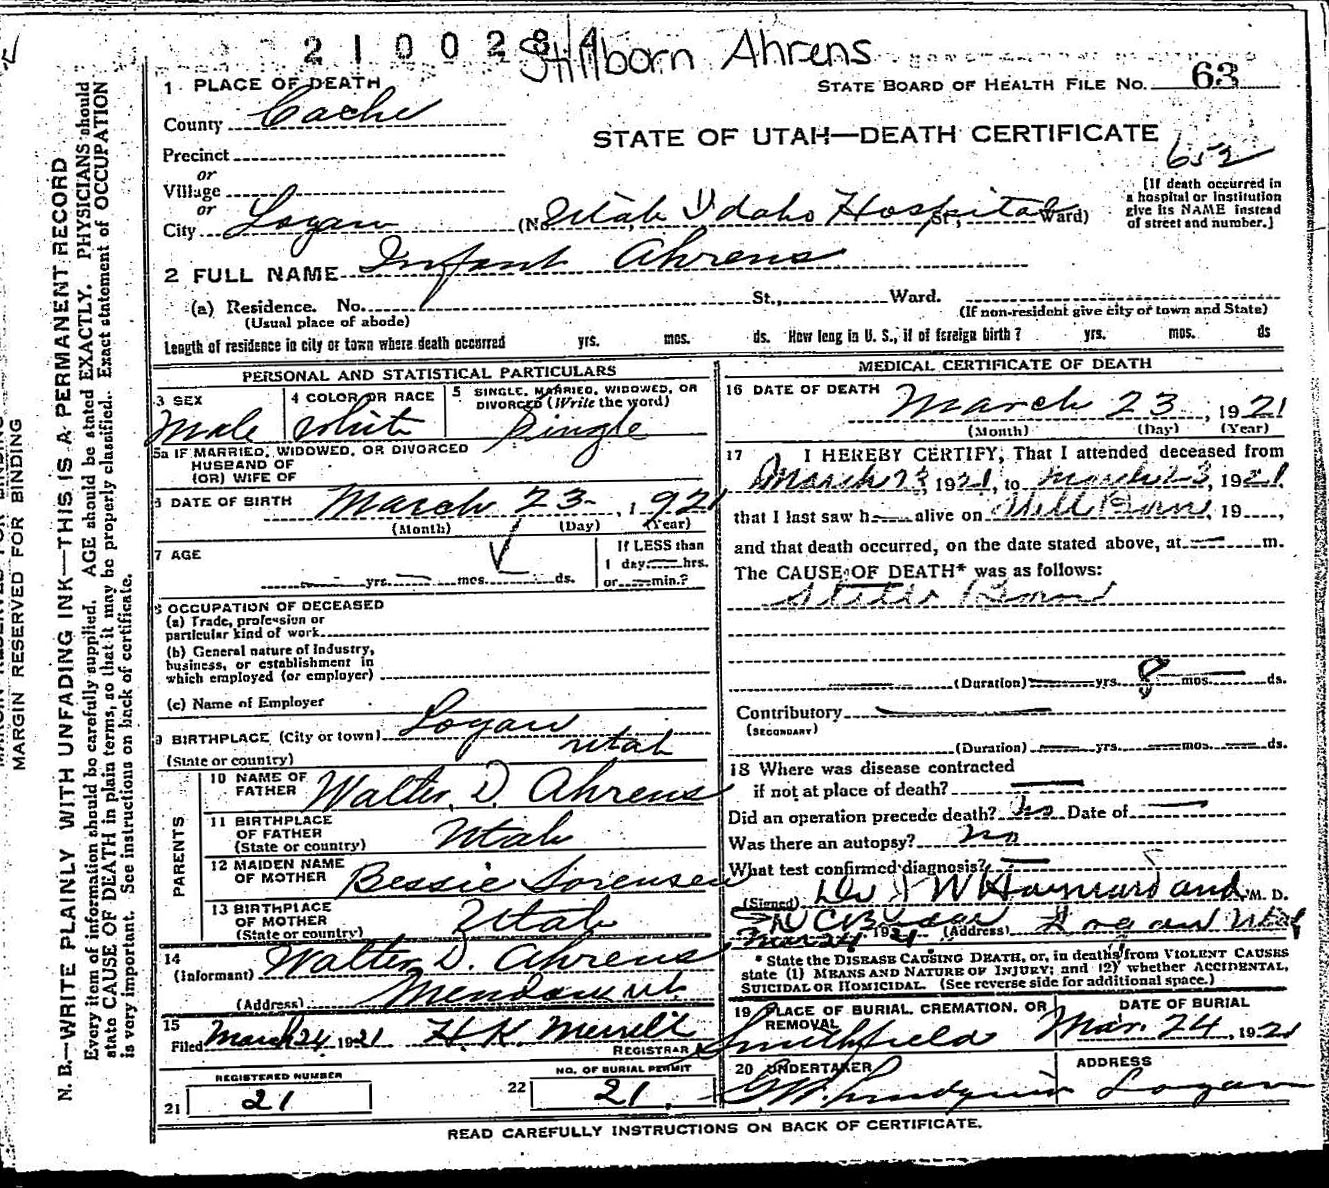 2100284
Stillborn Ahrens
STATE BOARD OF HEALTH FILE No. 63
1 PLACE OF DEATH
County Cache
STATE OF UTAH—DEATH CERTIFICATE
652
Precinct
or
Village
or
City Logan (No Utah Idaho Hospital St., Ward)
[If death occurred in
a hospital or institution
give its NAME instead
of street and number.]
2 FULL NAME Infant Ahrens
(a) Residence. No. St., Ward.
(Usual place of abode) (If non-resident give city or town and State)
Length of residence in city or town where death occurred yrs. mos. ds. How long in U. S., if of foreign birth? yrs. mos. ds
PERSONAL AND STATISTICAL PARTICULARS
3 SEX
Male
4 COLOR OR RACE
White
5 SINGLE, MARRIED, WIDOWED, OR
DIVORCED (Write the word)
Single
5a IF MARRIED, WIDOWED, OR DIVORCED
HUSBAND OF
(OR) WIFE OF
6 DATE OF BIRTH March 23 1921
(Month) (Day) (Year)
7 AGE
yrs. mos. ds.
If LESS than
1 day hrs.
or min.?
8 OCCUPATION OF DECEASED
(a) Trade, profession or
particular kind of work
(b) General nature of Industry,
business, or establishment in
which employed (or employer)
(c) Name of Employer
9 BIRTHPLACE (City or town) Logan
(State or country) Utah
PARENTS
10 NAME OF
FATHER Walter D. Ahrens
11 BIRTHPLACE
OF FATHER
(State or country) Utah
12 MAIDEN NAME
OF MOTHER Bessie Sorensen
13 BIRTHPLACE
OF MOTHER
(State or country) Utah
14
(Informant) Walter D. Ahrens
(Address) Mendon Ut.
15
Filed March 24 1921 H. K. Merrill
REGISTRAR
REGISTERED NUMBER
21 21
NO. OF BURIAL PERMIT
22 21
MEDICAL CERTIFICATE OF DEATH
16 DATE OF DEATH March 23, 1921
(Month) (Day) (Year)
17 I HEREBY CERTIFY, That I attended deceased from
March 23, 1921, to March 23, 1921
that I last saw h alive on Still Born, 19
and that death occurred, on the date stated above, at m.
The CAUSE OF DEATH* was as follows:
Still Born
(Duration) yrs. 8 mos. ds.
Contributory
(SECONDARY)
(Duration) yrs. mos. ds.
18 Where was disease contracted
if not at place of death?
Did an operation precede death? no Date of
Was there an autopsy? no
What test confirmed diagnosis?
(Signed) J W Hayward and M. D.
D C Budge
Mar 24 1921 (Address) Logan Utah
* State the DISEASE CAUSING DEATH, or, in deaths from VIOLENT CAUSES
state (1) MEANS AND NATURE OF INJURY; and (2) whether ACCIDENTAL,
SUICIDAL OR HOMICIDAL. (See reverse side for additional space.)
19 PLACE OF BURIAL, CREMATION, OR
REMOVAL
Smithfield
DATE OF BURIAL
Mar. 24, 1921
20 UNDERTAKER
Lindquist
ADDRESS
Logan
READ CAREFULLY INSTRUCTIONS ON BACK OF CERTIFICATE.
MARGIN RESERVED FOR BINDING
N. B.—WRITE PLAINLY WITH UNFADING INK—THIS IS A PERMANENT RECORD
Every item of information should be carefully supplied. AGE should be stated EXACTLY. PHYSICIANS should
state CAUSE OF DEATH in plain terms, so that it may be properly classified. Exact statement of OCCUPATION
is very important. See instructions on back of certificate.